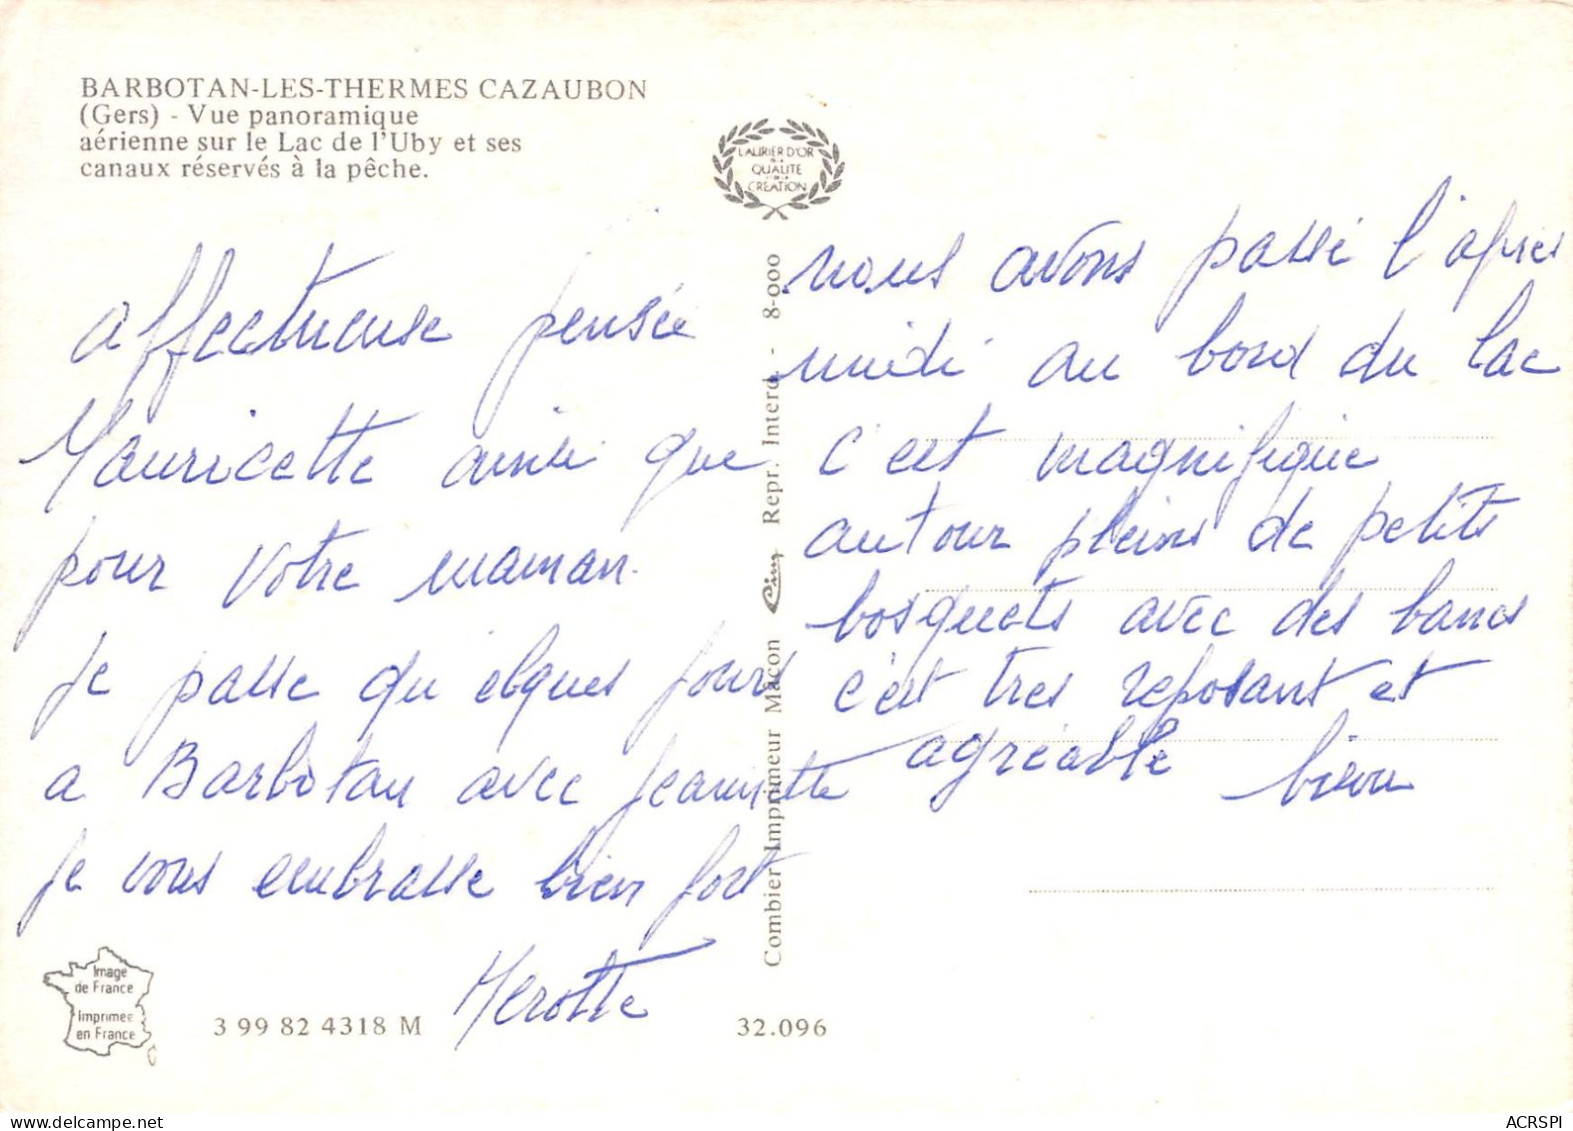 BARBOTAN-LES-THERMES CAZAUBON
(Gers) - Vue panoramique
aérienne sur le Lac de l'Uby et ses
canaux réservés à la pêche.
LAURIER D'OR
DE LA
QUALITE
DE LA
CREATION
affectueuse pensée
Mauricette ainsi que
pour votre maman.
je passe qu'elques jours
a Barbotan avec Jeannette
je vous embrasse bien fort
Combier Imprimeur Mâcon Cim Repr. Interd. - 8-000
nous avons passé l'après
midi au bord du lac
c'est magnifique
autour pleins de petits
bosquets avec des bancs
c'est tres reposant et
agréable
Image
de France
Imprimée
en France
3 99 82 4318 M
32.096
ACRSPI